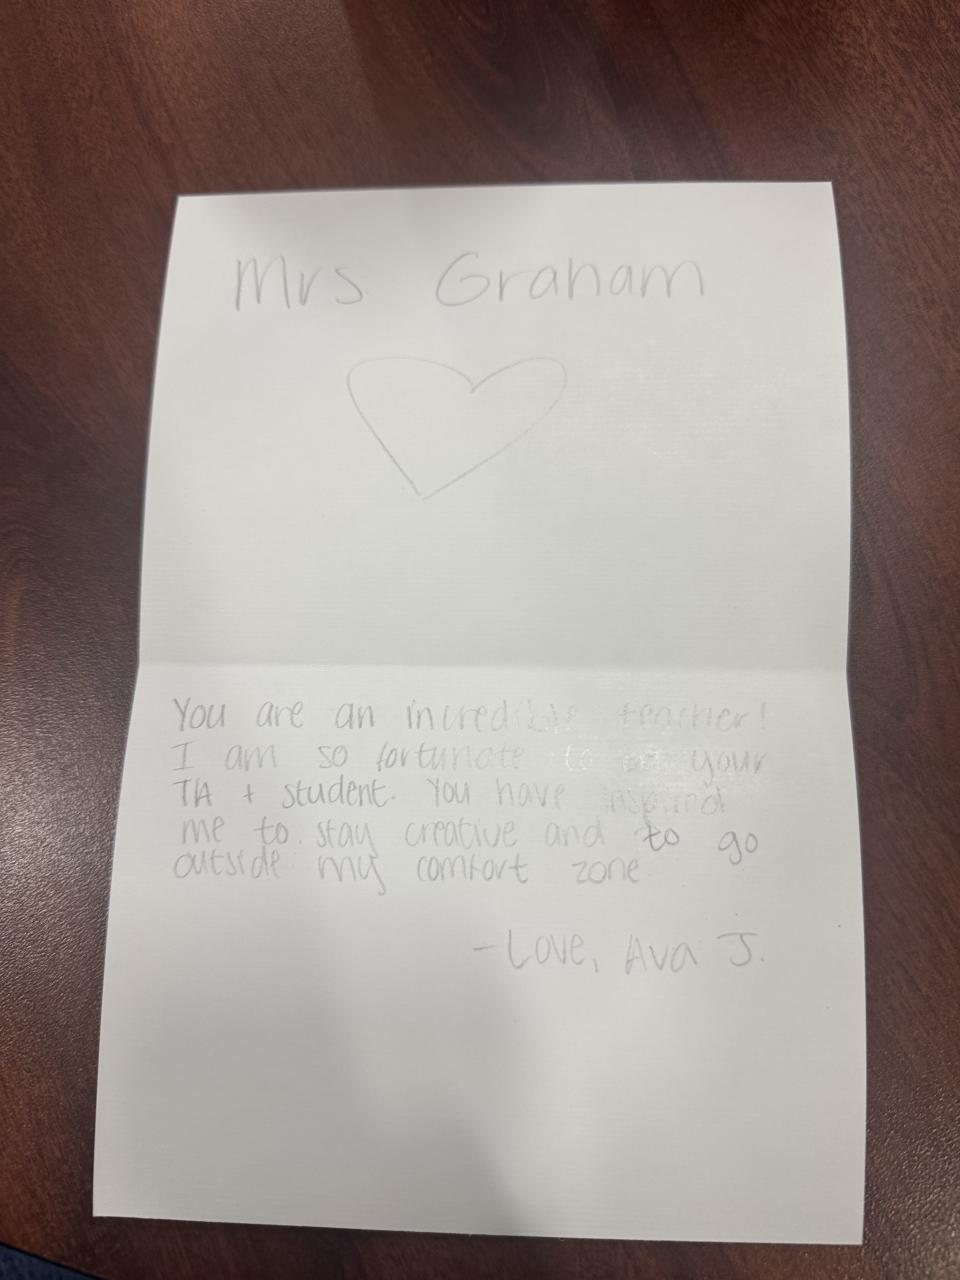 Mrs Graham
You are an incredible teacher!
I am so fortunate to be your
TA + student. You have inspired
me to stay creative and to go
outside my comfort zone
- Love, Ava J.